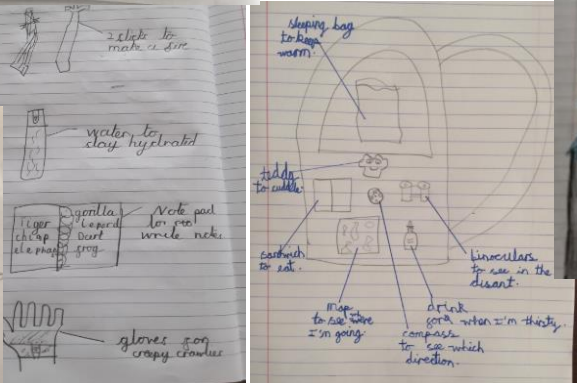 2 stick to
make a fire
water to
stay hydrated
tiger
cheap
elephant
gorilla
Leperd
Dart
frog
Note pad
for
write note
gloves for
creepy crawlies
sleeping bag
to keep
warm.
teddy
to cuddle
sandwich
to eat.
map
to see were
I'm going
compass
to see which
direction.
drink
for when I'm thirsty.
binoculars
to see in the
disant.